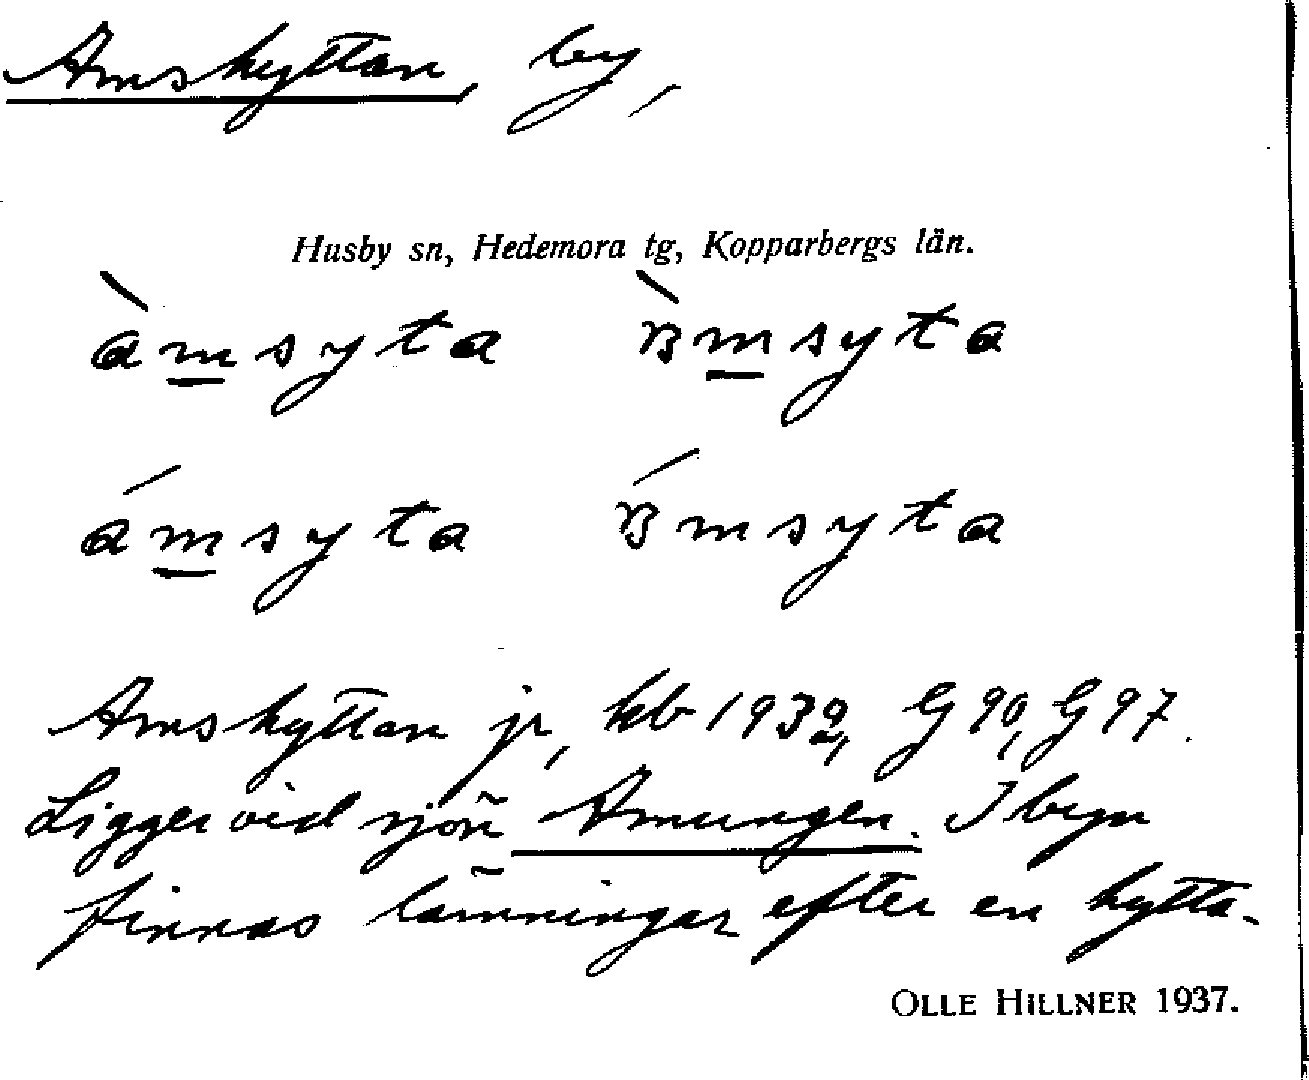 Amshyttan, by,
Husby sn, Hedemora tg, Kopparbergs län.
àm̲syta ɞ̀m̲syta
ám̲syta ɞ́msyta
Amshyttan jr, kb 1932, G 90, G 97.
Ligger vid sjön Amungen. I byn
finnas lämningar efter en hytta.
OLLE HILLNER 1937.